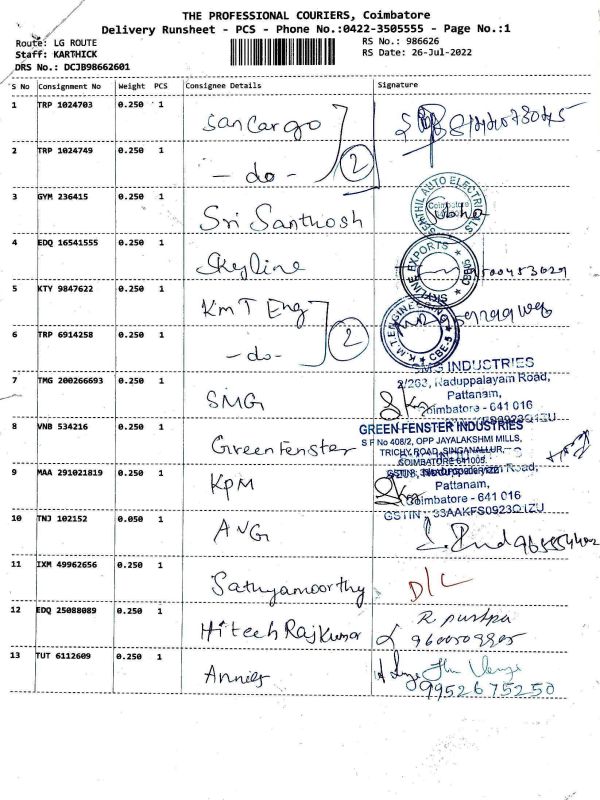 THE PROFESSIONAL COURIERS, Coimbatore
Delivery Runsheet - PCS - Phone No.:0422-3505555 - Page No.:1
Route: LG ROUTE
Staff: KARTHICK
DRS No.: DCJB98662601
RS No.: 986626
RS Date: 26-Jul-2022
S No Consignment No Weight PCS Consignee Details Signature
1 TRP 1024703 0.250 1 Sancargo
2 TRP 1024749 0.250 1 - do - 2
3 GYM 236415 0.250 1 Sri Santhosh
SENTHIL AUTO ELECTRICALS
Coimbatore
4 EDQ 16541555 0.250 1 Skyline
SKYLINE EXPORTS CBE
5 KTY 9847622 0.250 1 KMT Eng
K.M.T. ENGINEERING CBE-5
6 TRP 6914258 0.250 1 - do - 2
7 TMG 200266693 0.250 1 SMG
SMG INDUSTRIES
2/263, Naduppalayam Road,
Pattanam,
Coimbatore - 641 016
8 VNB 534216 0.250 1 Greenfenster
GREEN FENSTER INDUSTRIES
S F No 408/2, OPP JAYALAKSHMI MILLS,
TRICHY ROAD, SINGANALLUR,
COIMBATORE 641005.
9 MAA 291021819 0.250 1 KPM
Road,
Pattanam,
Coimbatore - 641 016
GSTIN : 33AAKFS0923Q1ZU
10 TNJ 102152 0.050 1 ANG
11 IXM 49962656 0.250 1 Sathyamoorthy D/L
12 EDQ 25088089 0.250 1 Hitech Rajkumar R pushpa
13 TUT 6112609 0.250 1 Annies
9952675250